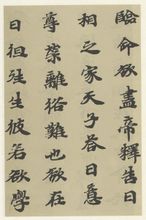 臨命欲盡帝釋告曰
相之家天子答曰慧
尊榮離俗難也欲在
日徂殞生彼若欲學